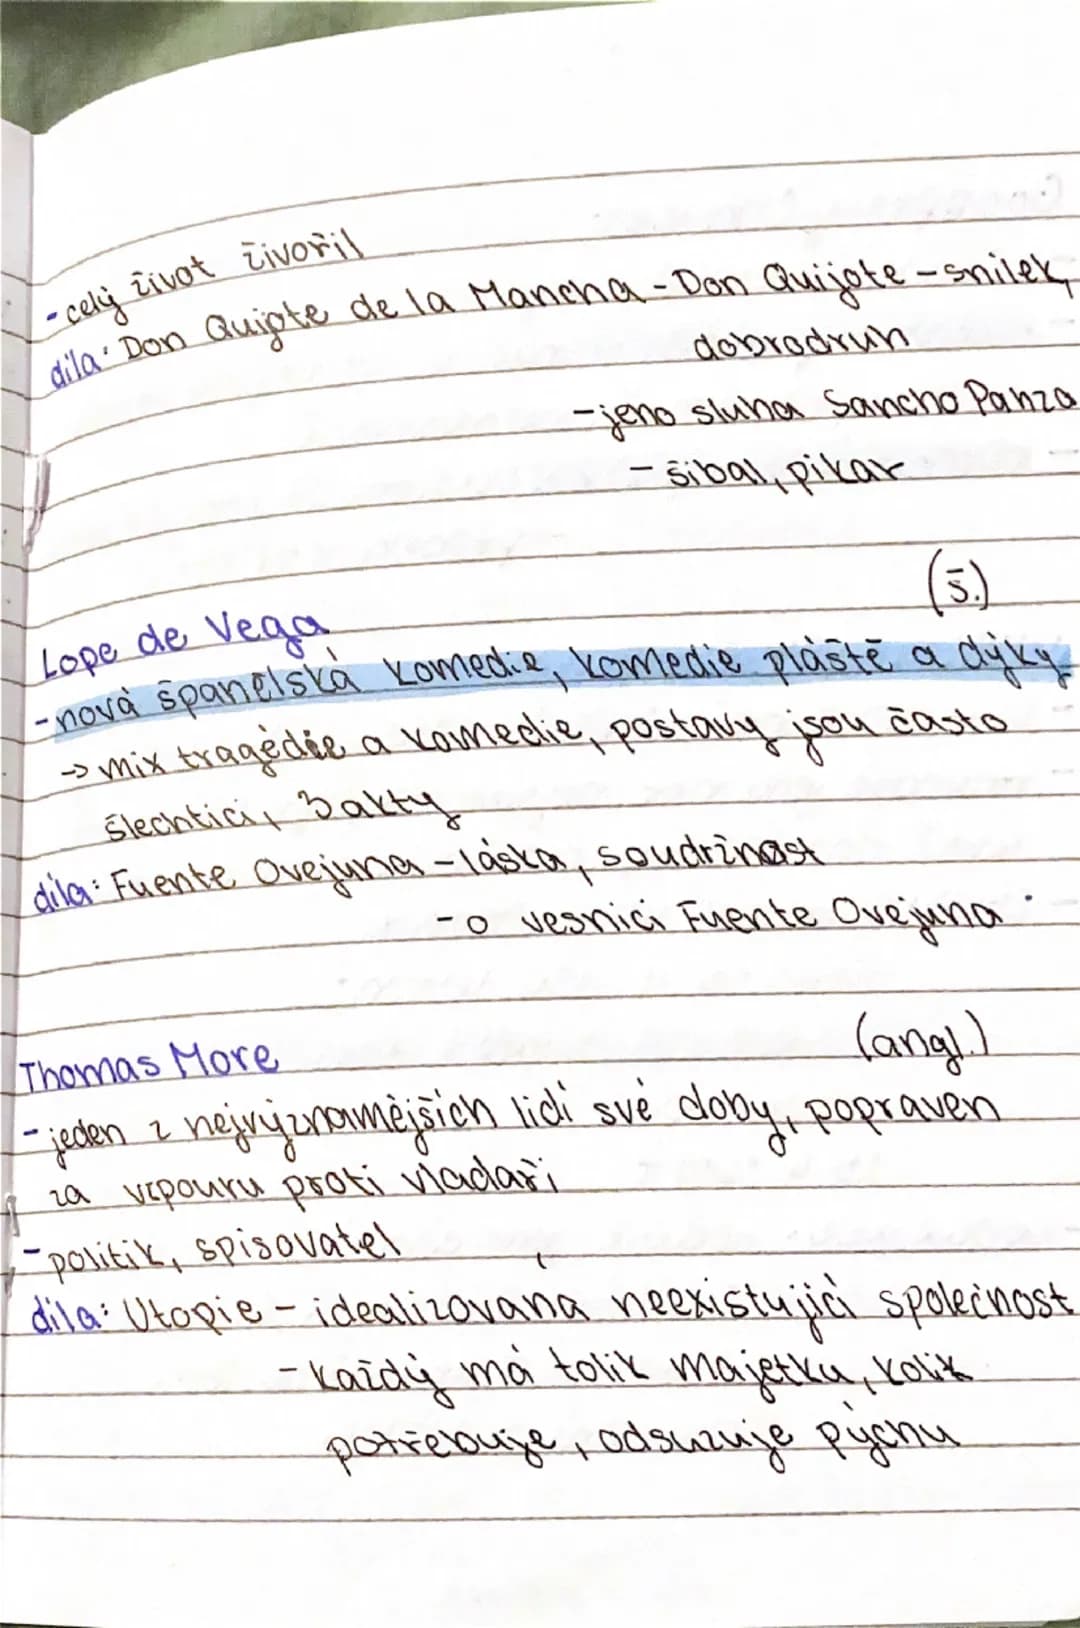 - celý život živořil
díla: Don Quijote de la Mancha - Don Quijote - snílek,
dobrodruh
- jeho sluha Sancho Panza
- šibal, pikar
(š.)
Lope de Vega
- nová španělská komedie, komedie pláště a dýky
→ mix tragédie a komedie, postavy jsou často
šlechtici, 3 akty
díla: Fuente Ovejuna - láska, soudržnost
- o vesnici Fuente Ovejuna
Thomas More (angl.)
- jeden z nejvýznamějších lidí své doby, popraven
za vzpouru proti vladaři
- politik, spisovatel
díla: Utopie - idealizovaná neexistující společnost
- každý má tolik majetku, kolik
potřebuje, odsuzuje pýchu